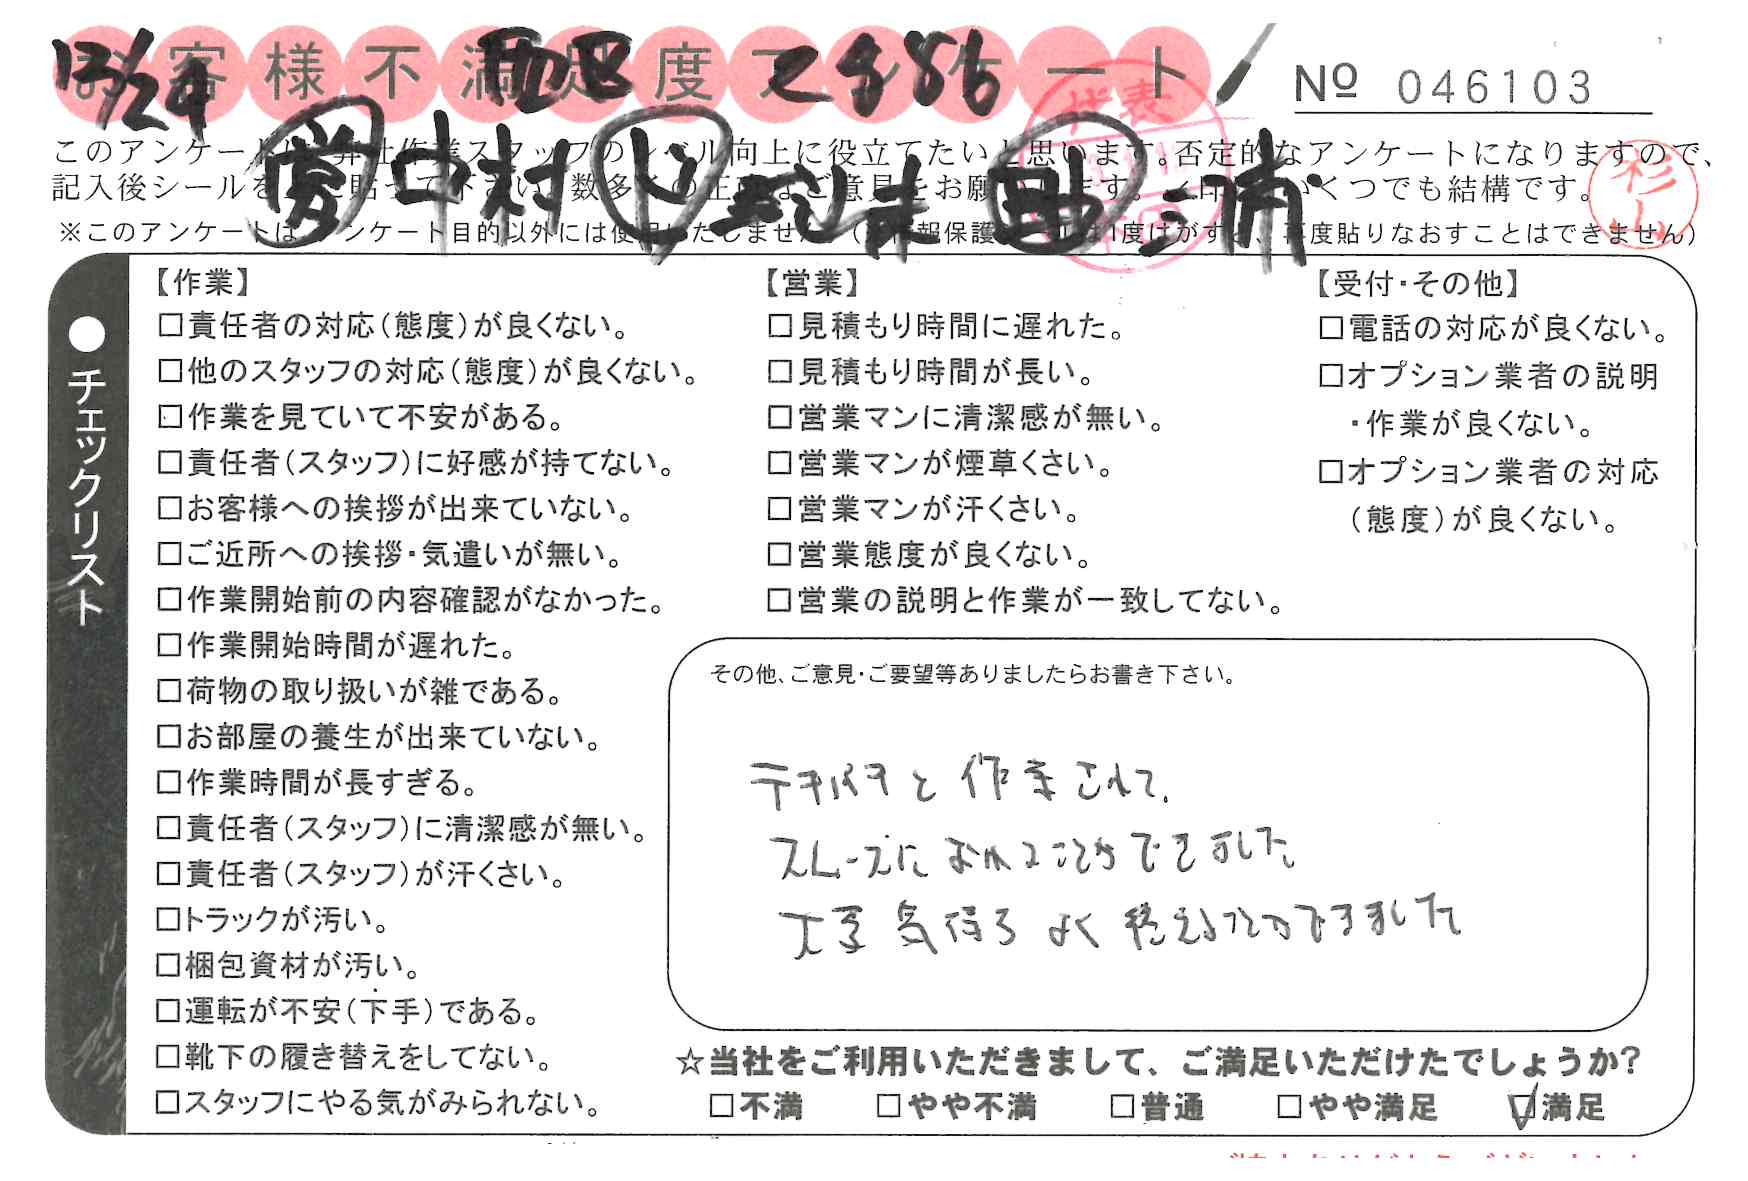 お客様不満足度アンケート
12/24
2886
№ 046103
このアンケートは、弊社作業スタッフのレベル向上に役立てたいと思います。否定的なアンケートになりますので、
記入後シールを 貼って下さい。数多くの正直なご意見をお願い します。 いくつでも結構です。
※このアンケートはアンケート目的以外には使用いたしません。( 情報保護 度はがすと、再度貼りなおすことはできません)
営 中村 上
代表
杉山
●チェックリスト
【作業】
□責任者の対応(態度)が良くない。
□他のスタッフの対応(態度)が良くない。
□作業を見ていて不安がある。
□責任者(スタッフ)に好感が持てない。
□お客様への挨拶が出来ていない。
□ご近所への挨拶・気遣いが無い。
□作業開始前の内容確認がなかった。
□作業開始時間が遅れた。
□荷物の取り扱いが雑である。
□お部屋の養生が出来ていない。
□作業時間が長すぎる。
□責任者(スタッフ)に清潔感が無い。
□責任者(スタッフ)が汗くさい。
□トラックが汚い。
□梱包資材が汚い。
□運転が不安(下手)である。
□靴下の履き替えをしてない。
□スタッフにやる気がみられない。
【営業】
□見積もり時間に遅れた。
□見積もり時間が長い。
□営業マンに清潔感が無い。
□営業マンが煙草くさい。
□営業マンが汗くさい。
□営業態度が良くない。
□営業の説明と作業が一致してない。
【受付・その他】
□電話の対応が良くない。
□オプション業者の説明
・作業が良くない。
□オプション業者の対応
(態度)が良くない。
その他、ご意見・ご要望等ありましたらお書き下さい。
テキパキと作業されて、
スムーズにおわることができました
大変気持ちよく終えることができました
☆当社をご利用いただきまして、ご満足いただけたでしょうか?
□不満 □やや不満 □普通 □やや満足 ☑満足